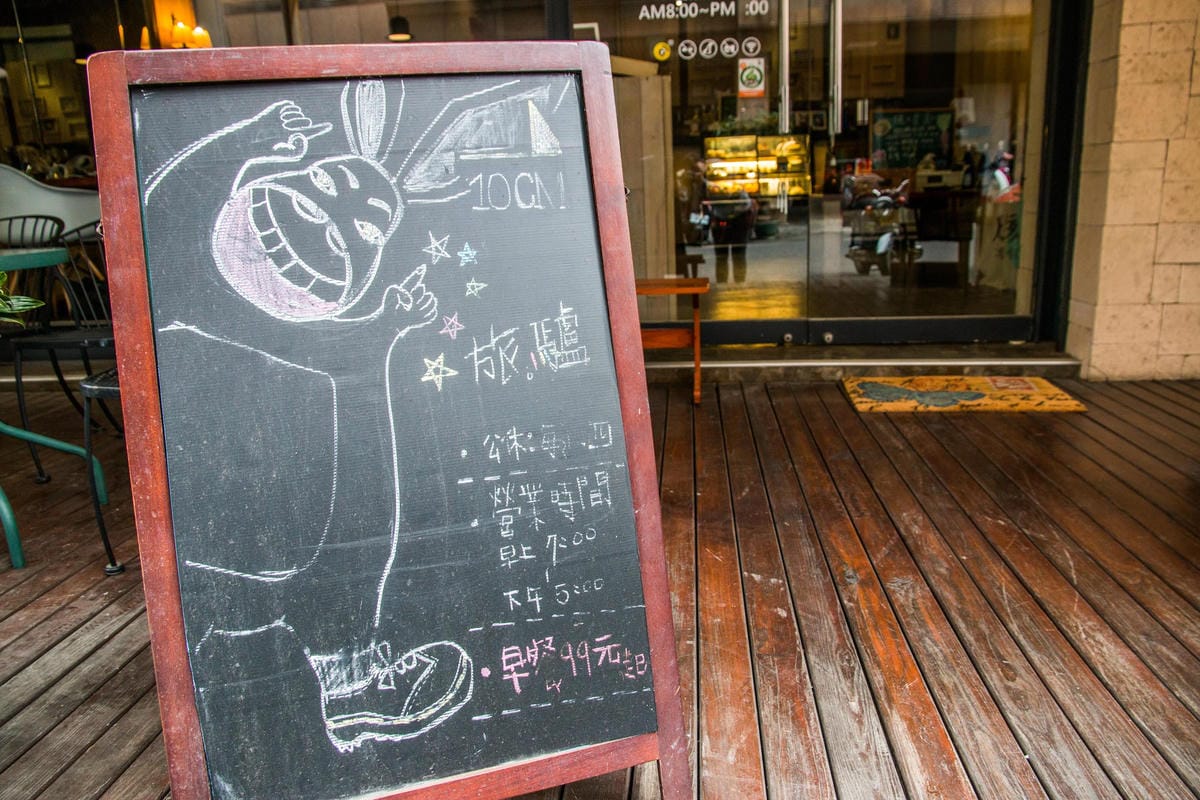 AM8:00~PM :00
10CM
旅.驢
• 公休:每 四
• 營業時間
早上 7:00
|
下午 5:00
• 早餐99元起